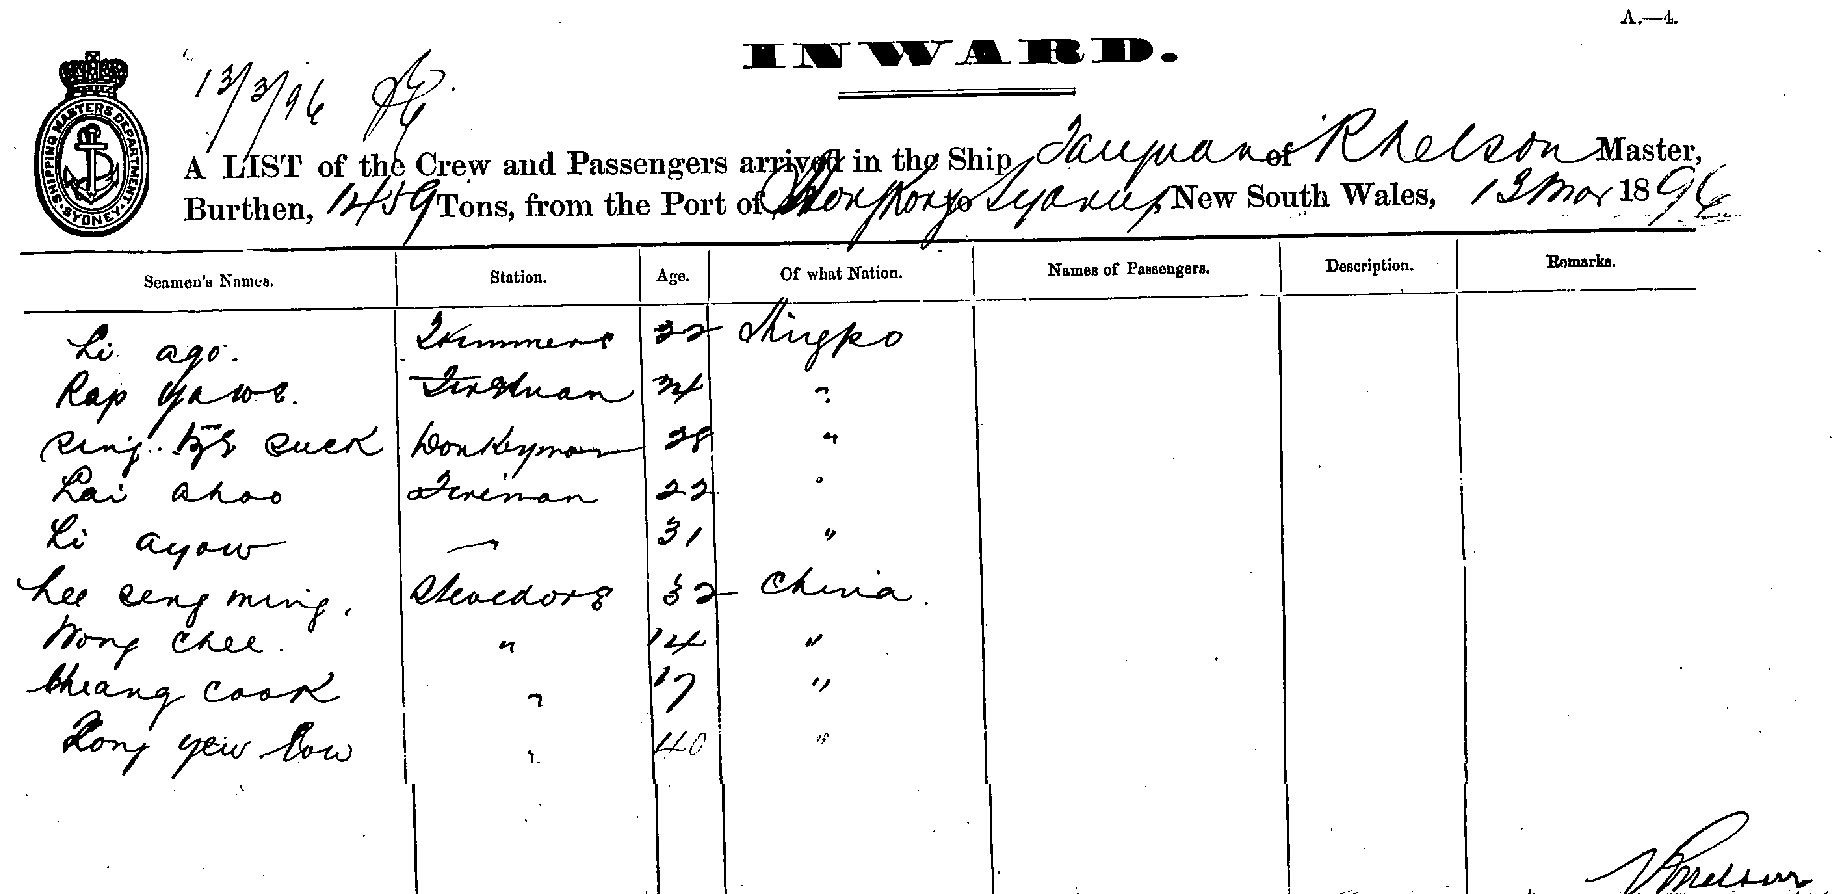 A.—4.
INWARD.
13/3/96
SHIPPING MASTERS DEPARTMENT. SYDNEY
A LIST of the Crew and Passengers arrived in the Ship Taiyuan of R Nelson Master,
Burthen, 1459 Tons, from the Port of Hong Kong to Sydney New South Wales, 13 Mar 1896
Seamen's Names. Station. Age. Of what Nation. Names of Passengers. Description. Remarks.
Li ago. Trimmers 32 Ningpo
Rap yawe. 34 "
Sing suck Donkeyman 28 "
Lai ahoo Fireman 22 "
Li ayow " 31 "
Lee seng ming, Stevedore 32 China.
Wong chee. " 14 "
Cheang cook " 17 "
Kong yew low " 40 "
R Nelson